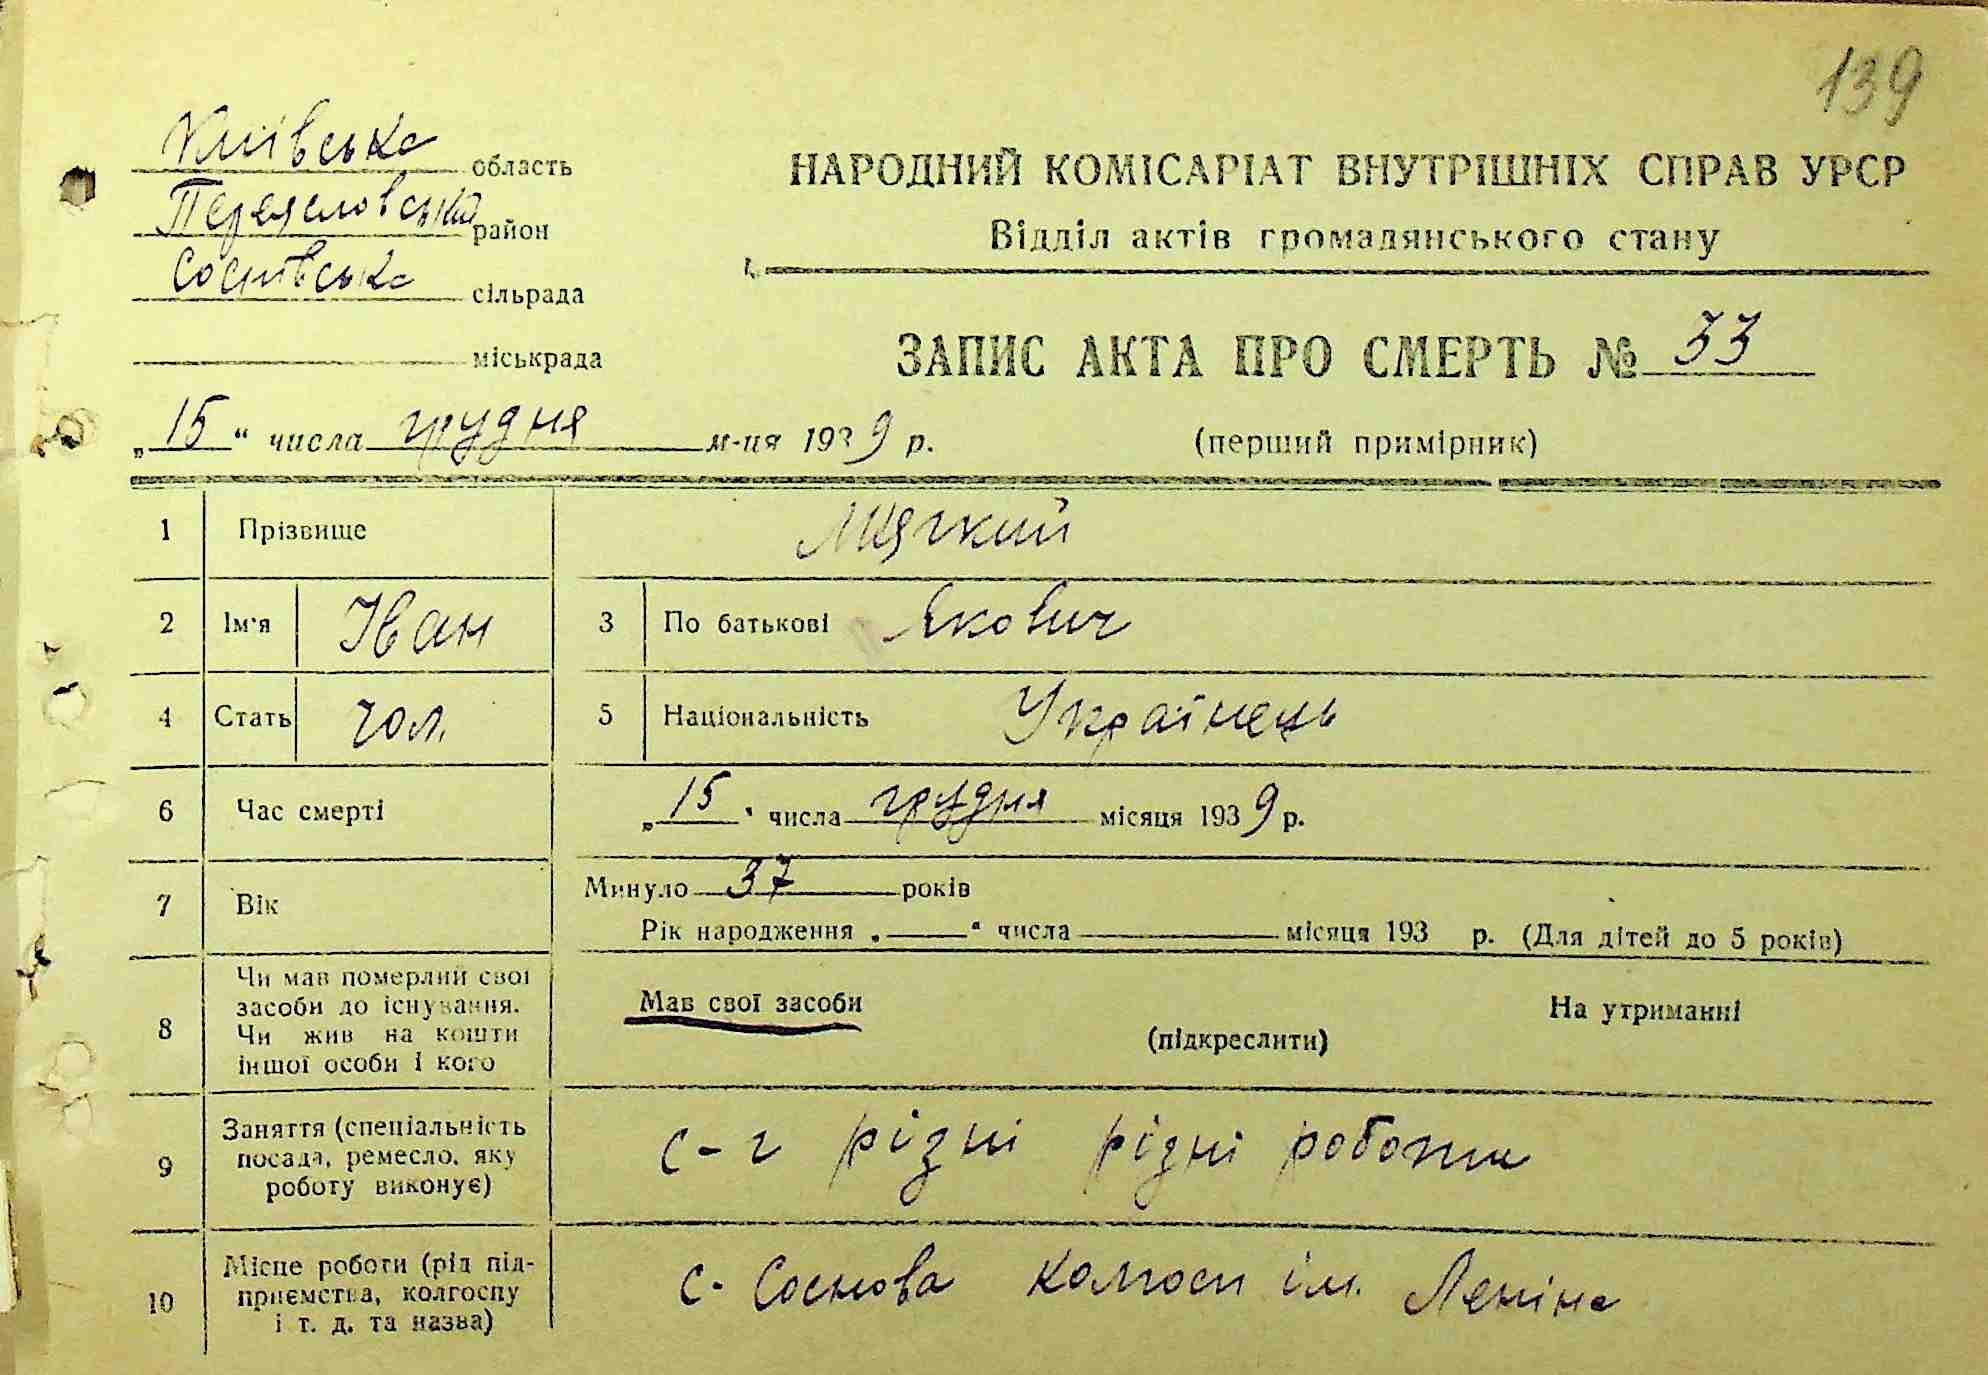 139
Київська область
Переяславська район
Соснівська сільрада
міськрада
НАРОДНИЙ КОМІСАРІАТ ВНУТРІШНІХ СПРАВ УРСР
Відділ актів громадянського стану
ЗАПИС АКТА ПРО СМЕРТЬ № 33
„15“ числа грудня м-ця 1939 р.
(перший примірник)
1 Прізвище Мягкий
2 Ім'я Іван 3 По батькові Якович
4 Стать чол. 5 Національність Українець
6 Час смерті „15“ числа грудня місяця 1939 р.
7 Вік Минуло 37 років
Рік народження „ “ числа місяця 193 р. (Для дітей до 5 років)
8 Чи мав померлий свої
засоби до існування.
Чи жив на кошти
іншої особи і кого
Мав свої засоби
(підкреслити)
На утриманні
9 Заняття (спеціальність
посада, ремесло, яку
роботу виконує)
с-г різні різні роботи
10 Місце роботи (рід під-
приємства, колгоспу
і т. д. та назва)
с. Соснова колгосп ім. Леніна